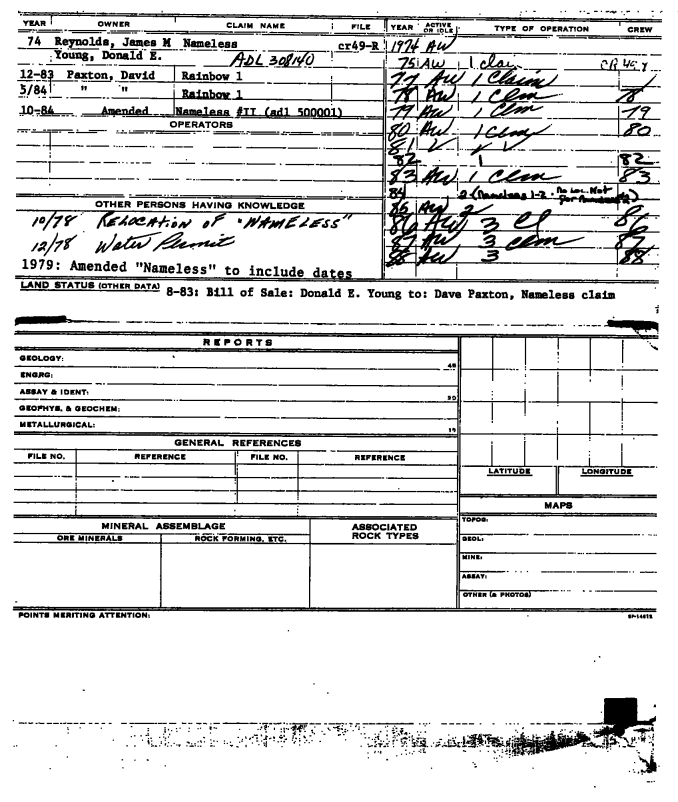 YEAR OWNER CLAIM NAME FILE YEAR ACTIVE OR IDLE TYPE OF OPERATION CREW
74 Reynolds, James M Nameless cr49-R 1974 AW
Young, Donald E. ADL 308140 75 AW 1 clai
12-83 Paxton, David Rainbow 1 77 AW 1 Claim
5/84 " " Rainbow 1 78 AW 1 Clm 78
10-84 Amended Nameless #II (adl 500001) 79 AW 1 Clm 79
OPERATORS
80 AW 1 Clm 80
81 ✓ ✓ ✓
82 1 82
83 AW 1 Clm 83
84 2 (Nameless 1-2
OTHER PERSONS HAVING KNOWLEDGE 85 AW 2
10/78 RELOCATION OF "NAMELESS" 86 AW 3 Cl 86
12/78 Water Permit 87 AW 3 Clm 87
1979: Amended "Nameless" to include dates 88 AW 3 88
LAND STATUS (OTHER DATA) 8-83: Bill of Sale: Donald E. Young to: Dave Paxton, Nameless claim
REPORTS
GEOLOGY:
ENGRG:
ASSAY & IDENT:
GEOPHYS. & GEOCHEM:
METALLURGICAL:
GENERAL REFERENCES
FILE NO. REFERENCE FILE NO. REFERENCE
LATITUDE LONGITUDE
MAPS
MINERAL ASSEMBLAGE ASSOCIATED ROCK TYPES TOPOG:
ORE MINERALS ROCK FORMING, ETC. GEOL:
MINE:
ASSAY:
OTHER (& PHOTOS)
POINTS MERITING ATTENTION: